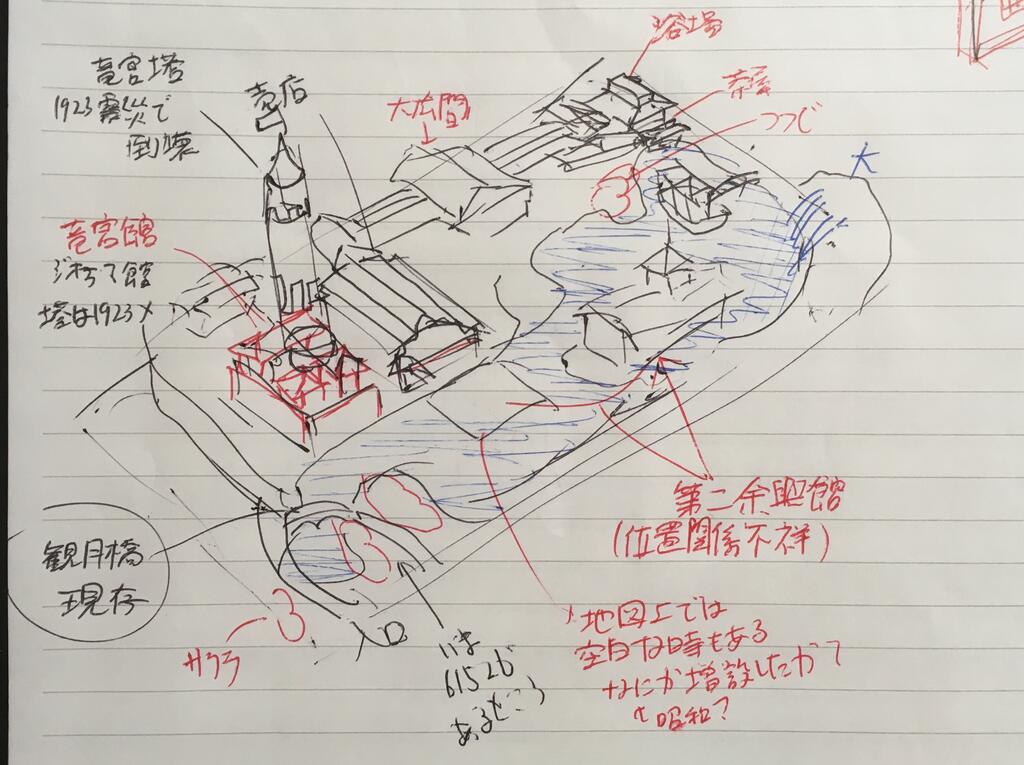 竜宮塔
1923震災で
倒壊
売店
大広間
浴場
茶屋
つつじ
大
竜宮館
塔は1923×
観月橋
現存
サクラ
入口
いま
6152が
あるところ
第二余興館
(位置関係不祥)
地図上では
空白な時もある
なにか増設したかも
昭和?